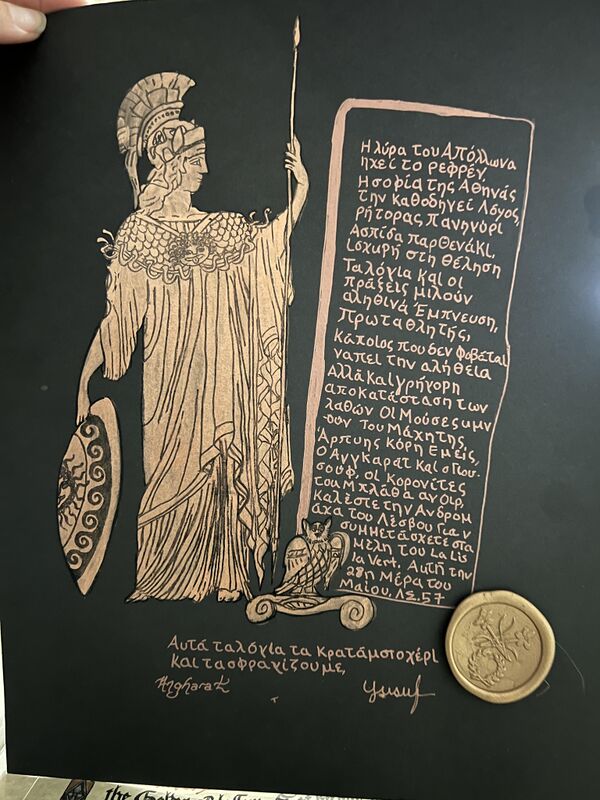 Η λύρα του Απόλλωνα
ηχεί το ρεφρέν,
Η σοφία της Αθηνάς
την καθοδηγεί Λόγος,
ρήτορας πανηγύρι
Ασπίδα παρθενάκι,
ισχυρή στη θέληση
Τα λόγια και οι
πράξεις μιλούν
αληθινά Έμπνευση,
Πρωταθλητής,
Κάποιος που δεν φοβάται
να πει την αλήθεια
Αλλά Και γρήγορη
αποκατάσταση των
λαθών Οι Μούσες υμν
ούν του Μάχητης,
Άρπυης κόρη Εμείς,
Ο Αγγκαρατ Και ο Γιου-
σουφ, οι κορονίτες
του Μπλάθα αν Οιρ,
καλέστε την Ανδρομ
άχα του Λέσβου Για ν
συμμετάσχετε στα
Μέλη του La Lis
la Vert, Αυτή την
28η Μέρα του
Μαΐου, Λ.Σ. 57
Αυτά τα λόγια τα κρατάμστο χέρι
και τα σφραγίζουμε,
Angharat Yusuf